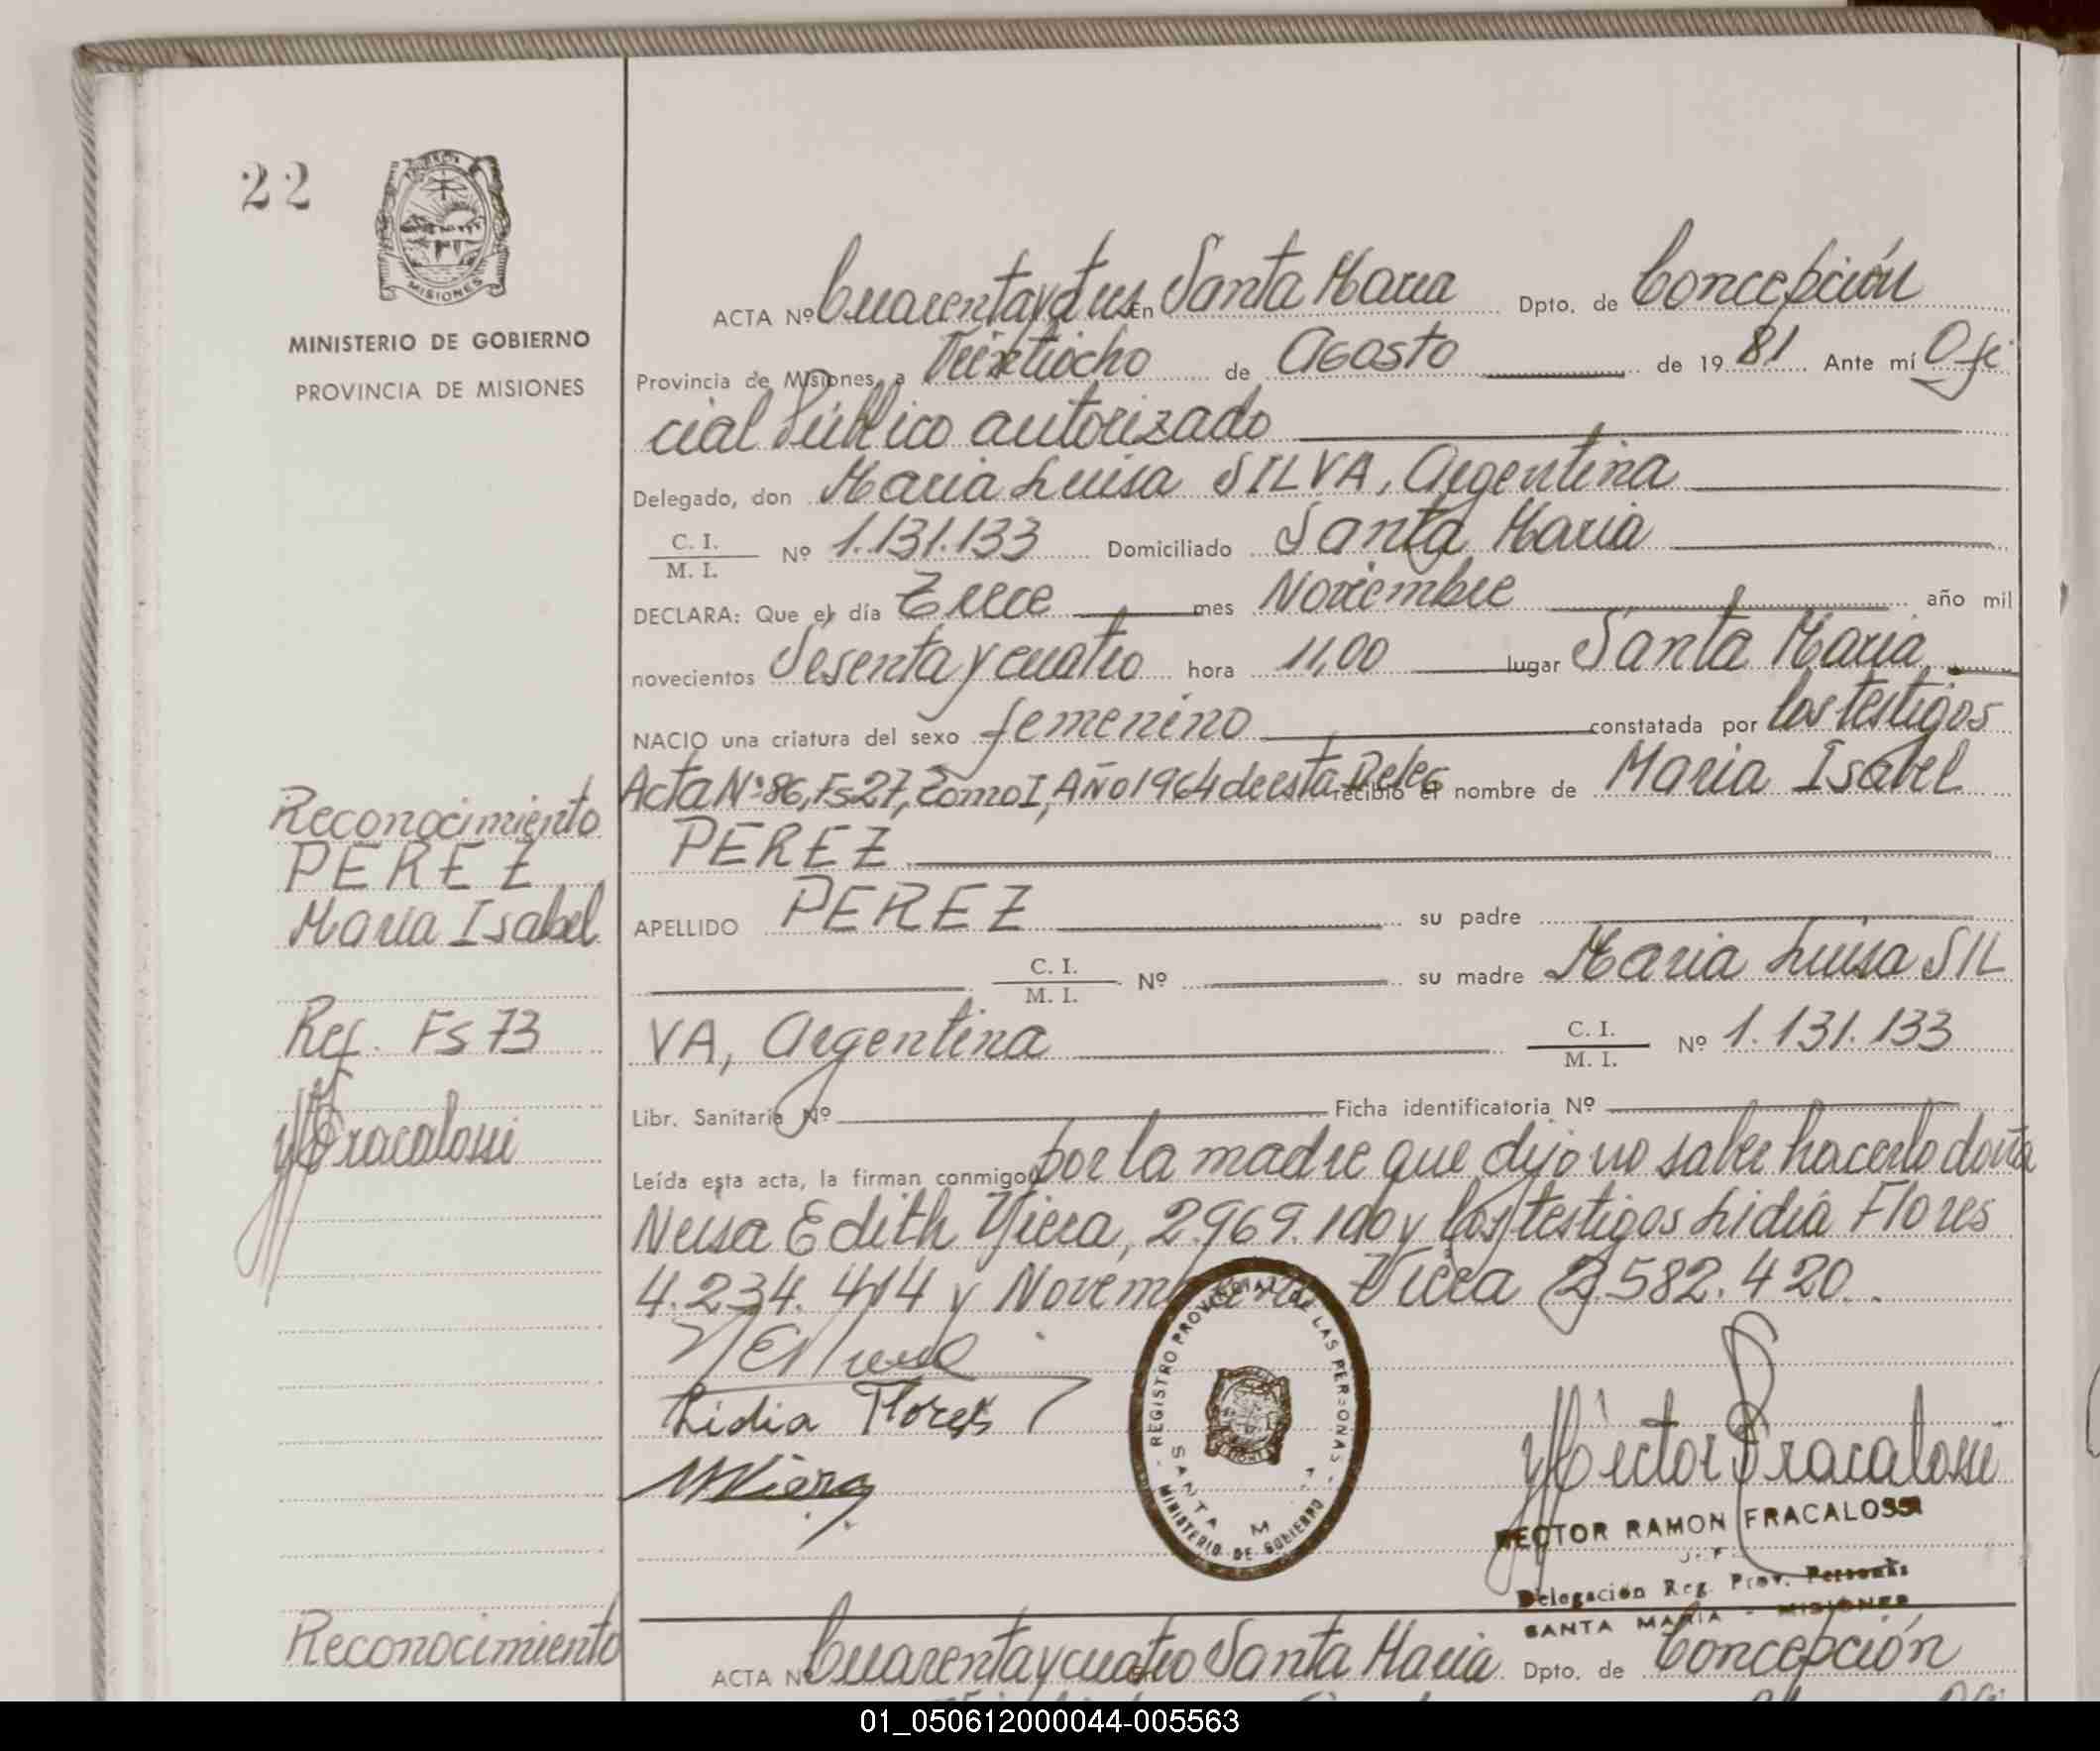 22
MISIONES
MINISTERIO DE GOBIERNO
PROVINCIA DE MISIONES
ACTA Nº Cuarentaytres En Santa Maria Dpto. de Concepción
Provincia de Misiones, a Veintiocho de Agosto de 19 81 Ante mí Ofi
cial Público autorizado
Delegado, don Maria Luisa SILVA, Argentina
C. I.
M. I. Nº 1.131.133 Domiciliado Santa Maria
DECLARA: Que el día Trece mes Noviembre año mil
novecientos Sesenta y cuatro hora 11,00 lugar Santa Maria
NACIO una criatura del sexo femenino constatada por los testigos
Acta Nº 86, Fs 27, Tomo I, Año 1964 de esta Deleg recibió el nombre de Maria Isabel
PEREZ
APELLIDO PEREZ su padre
C. I.
M. I. Nº su madre Maria Luisa SIL
VA, Argentina C. I.
M. I. Nº 1.131.133
Libr. Sanitaria Nº Ficha identificatoria Nº
Leída esta acta, la firman conmigo por la madre que dijo no saber hacerlo doña
Neisa Edith Viera, 2.969.100 y los testigos Lidia Flores
4.234.414 y Viera 2.582.420.
Lidia Flores
MViera
Hector Fracalossi
HECTOR RAMON FRACALOSSI
Delegación Reg. Prov. Personas
SANTA MARIA - MISIONES
REGISTRO PROVINCIAL DE LAS PERSONAS
MINISTERIO DE GOBIERNO
Reconocimiento
PEREZ
Maria Isabel
Ref. Fs 73
Fracalossi
Reconocimiento
ACTA Nº Cuarentaycuatro Santa Maria Dpto. de Concepción
01_050612000044-005563